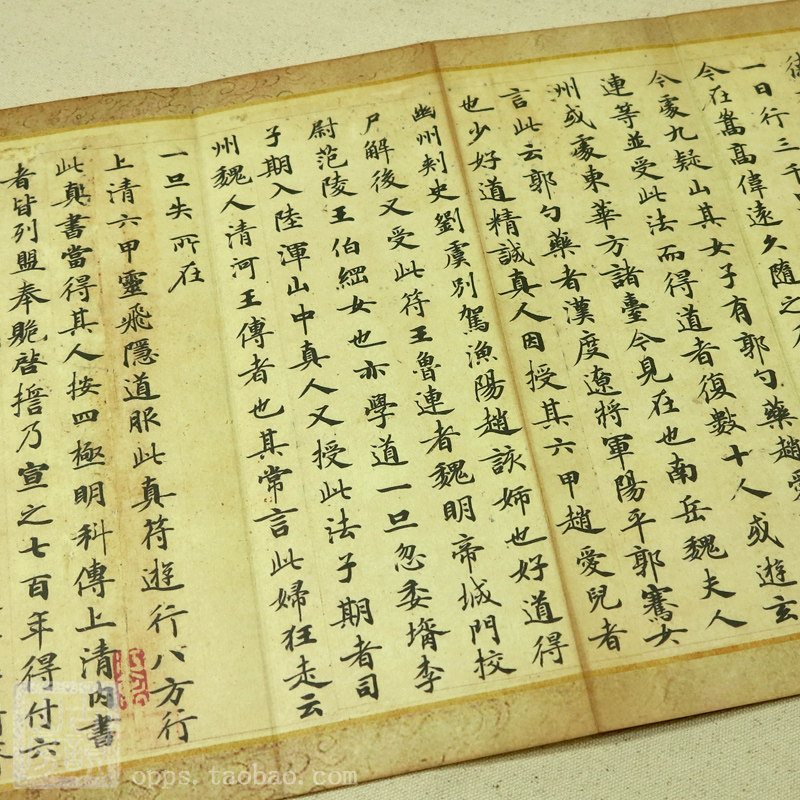 一日行三千
令在嵩高偉遠久隨之
今處九疑山其女子有郭勺藥趙愛
連等並受此法而得道者復數十人或遊玄
州或處東華方諸臺今見在也南岳魏夫人
言此云郭勺藥者漢度遼將軍陽平郭騫女
也少好道精誠真人因授其六甲趙愛兒者
幽州刾史劉虞別駕漁陽趙該姉也好道得
尸解後又受此符王魯連者魏明帝城門挍
尉范陵王伯綱女也亦學道一旦忽委壻李
子期入陸渾山中真人又授此法子期者司
州魏人清河王傳者也其常言此婦狂走云
一旦失所在
上清六甲靈飛隱道服此真符遊行八方行
此真書當得其人按四極明科傳上清內書
者皆列盟奉貺啓誓乃宣之七百年得付六
opps.taobao.com